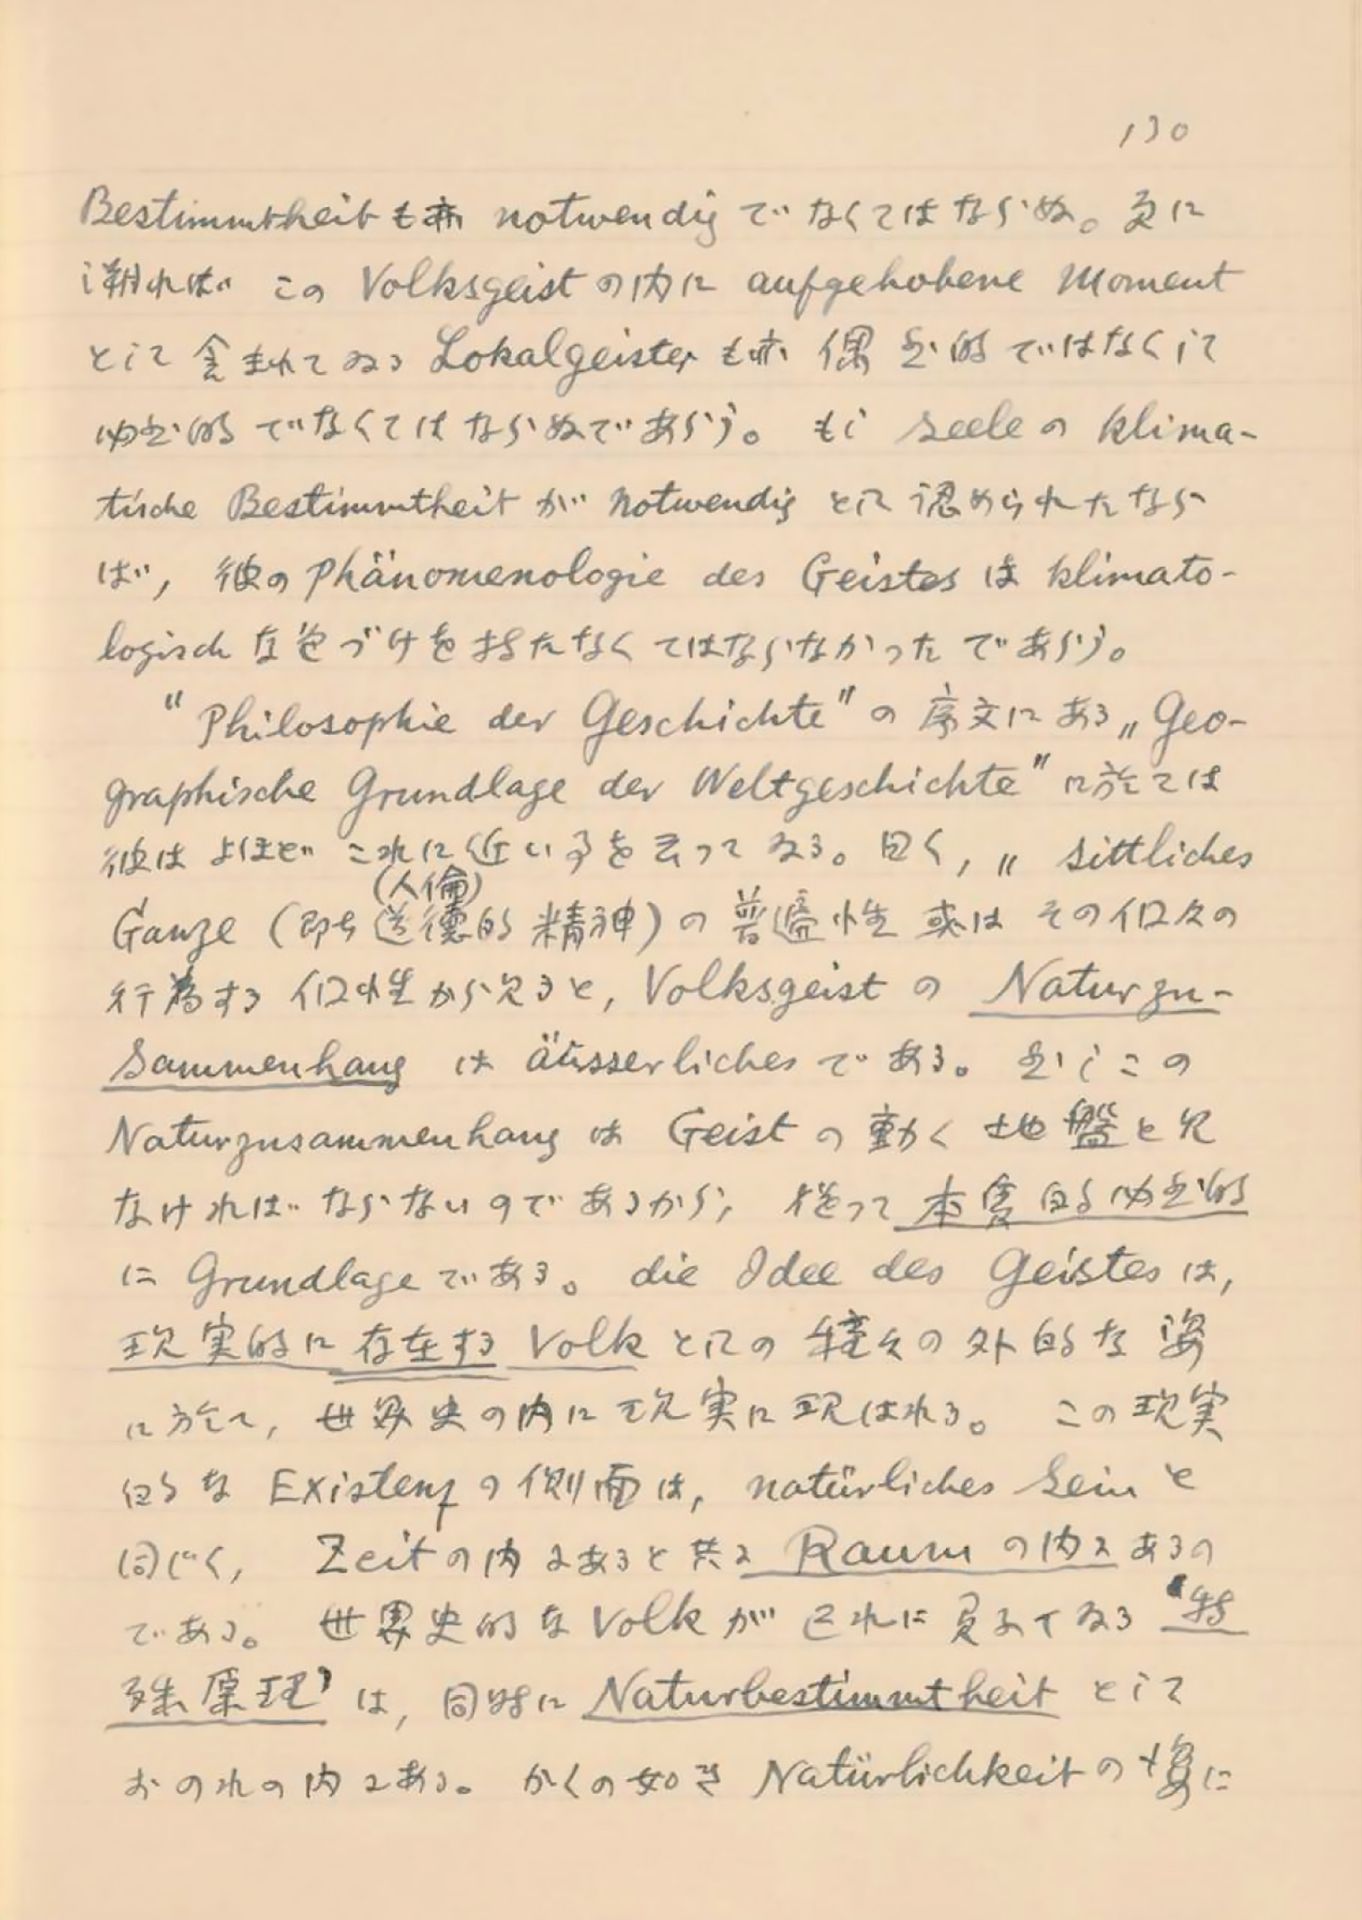 130
Bestimmtheit も亦 notwendig でなくてはならぬ。更に
溯れば この Volksgeist の内に aufgehobene Moment
として 含まれてゐる Lokalgeister も亦 偶然的ではなくして
必然的でなくてはならぬであらう。もし Seele の klima-
tische Bestimmtheit が notwendig として認められたなら
ば, 彼の Phänomenologie des Geistes は klimato-
logisch な色づけを持たなくてはならなかったであらう。
"Philosophie der Geschichte" の序文にある „Geo-
graphische Grundlage der Weltgeschichte" に於ては
彼はよほど これに近い事を云ってゐる。曰く, „ sittliches
(人倫)
Ganze (即ち道徳的精神) の普遍性 或は その個々の
行為する個性から見ると, Volksgeist の Naturzu-
sammenhang は äusserliches である。然しこの
Naturzusammenhang は Geist の動く地盤と見
なければならないのであるから, 従って本質的必然的
に Grundlage である。die Idee des Geistes は,
現実的に存在する Volk としての種々の外的な姿
に於て, 世界史の内に現実に現はれる。この現実
的な Existenz の側面は, natürliches Sein と
同じく, Zeit の内にあると共に Raum の内にあるの
である。世界史的な Volk が それに負うてゐる '特
殊原理' は, 同時に Naturbestimmtheit として
おのれの内にある。かくの如き Natürlichkeit の姿に